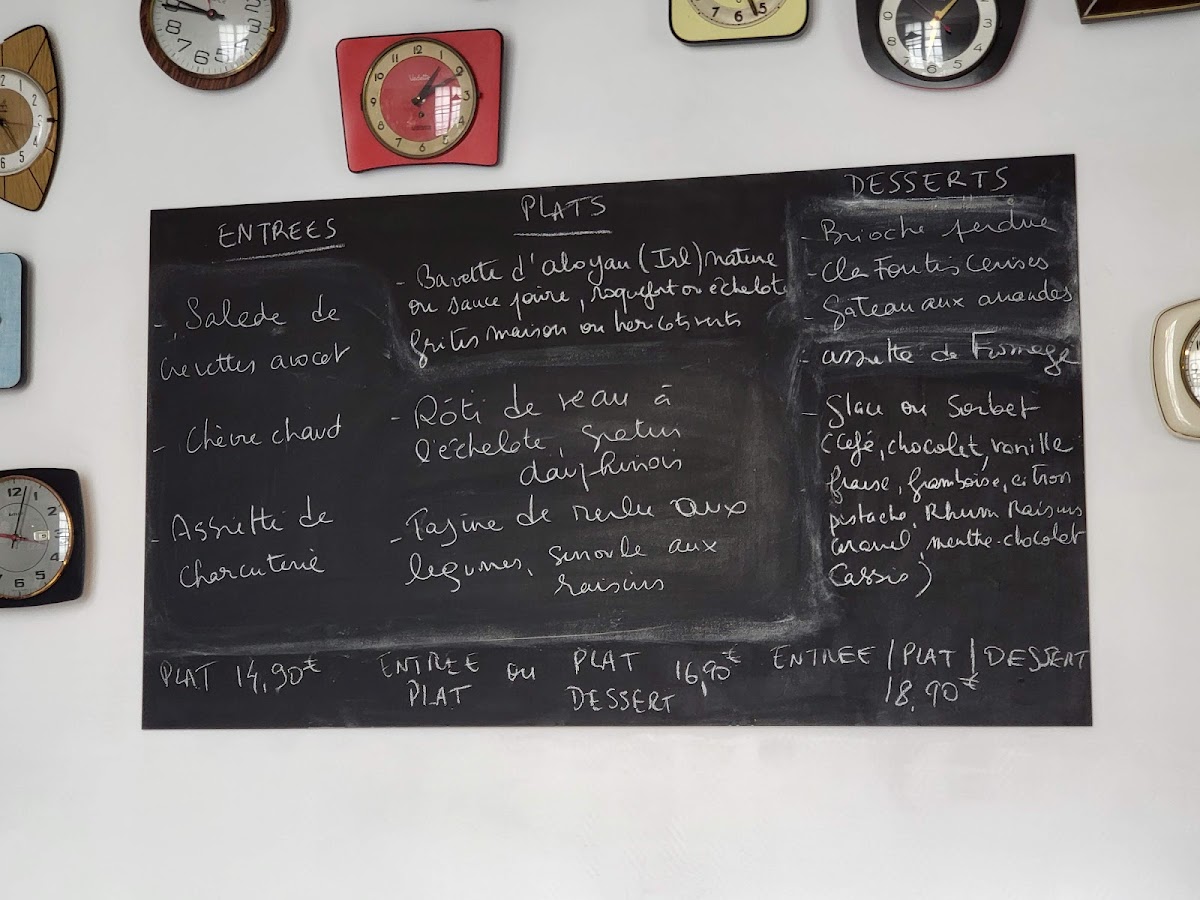 ENTREES
- Salade de
crevettes avocat
- Chèvre chaud
- Assiette de
charcuterie
PLATS
- Bavette d'aloyau (Irl) nature
ou sauce poivre, roquefort ou échelote
frites maison ou hericots verts
- Rôti de veau à
l'échelote, gratin
dauphinois
- Tajine de merlu aux
legumes, semoule aux
raisins
DESSERTS
- Brioche perdue
- Cla Foutis Cerises
- Gateau aux amandes
- assiette de Fromage
- Glace ou Sorbet
(café, chocolat, vanille
fraise, framboise, citron
pistache, Rhum Raisins
Caramel, menthe-chocolat
Cassis)
PLAT 14,90€
ENTREE
PLAT
ou
PLAT
DESSERT
16,90€
ENTREE / PLAT / DESSERT
18,90€